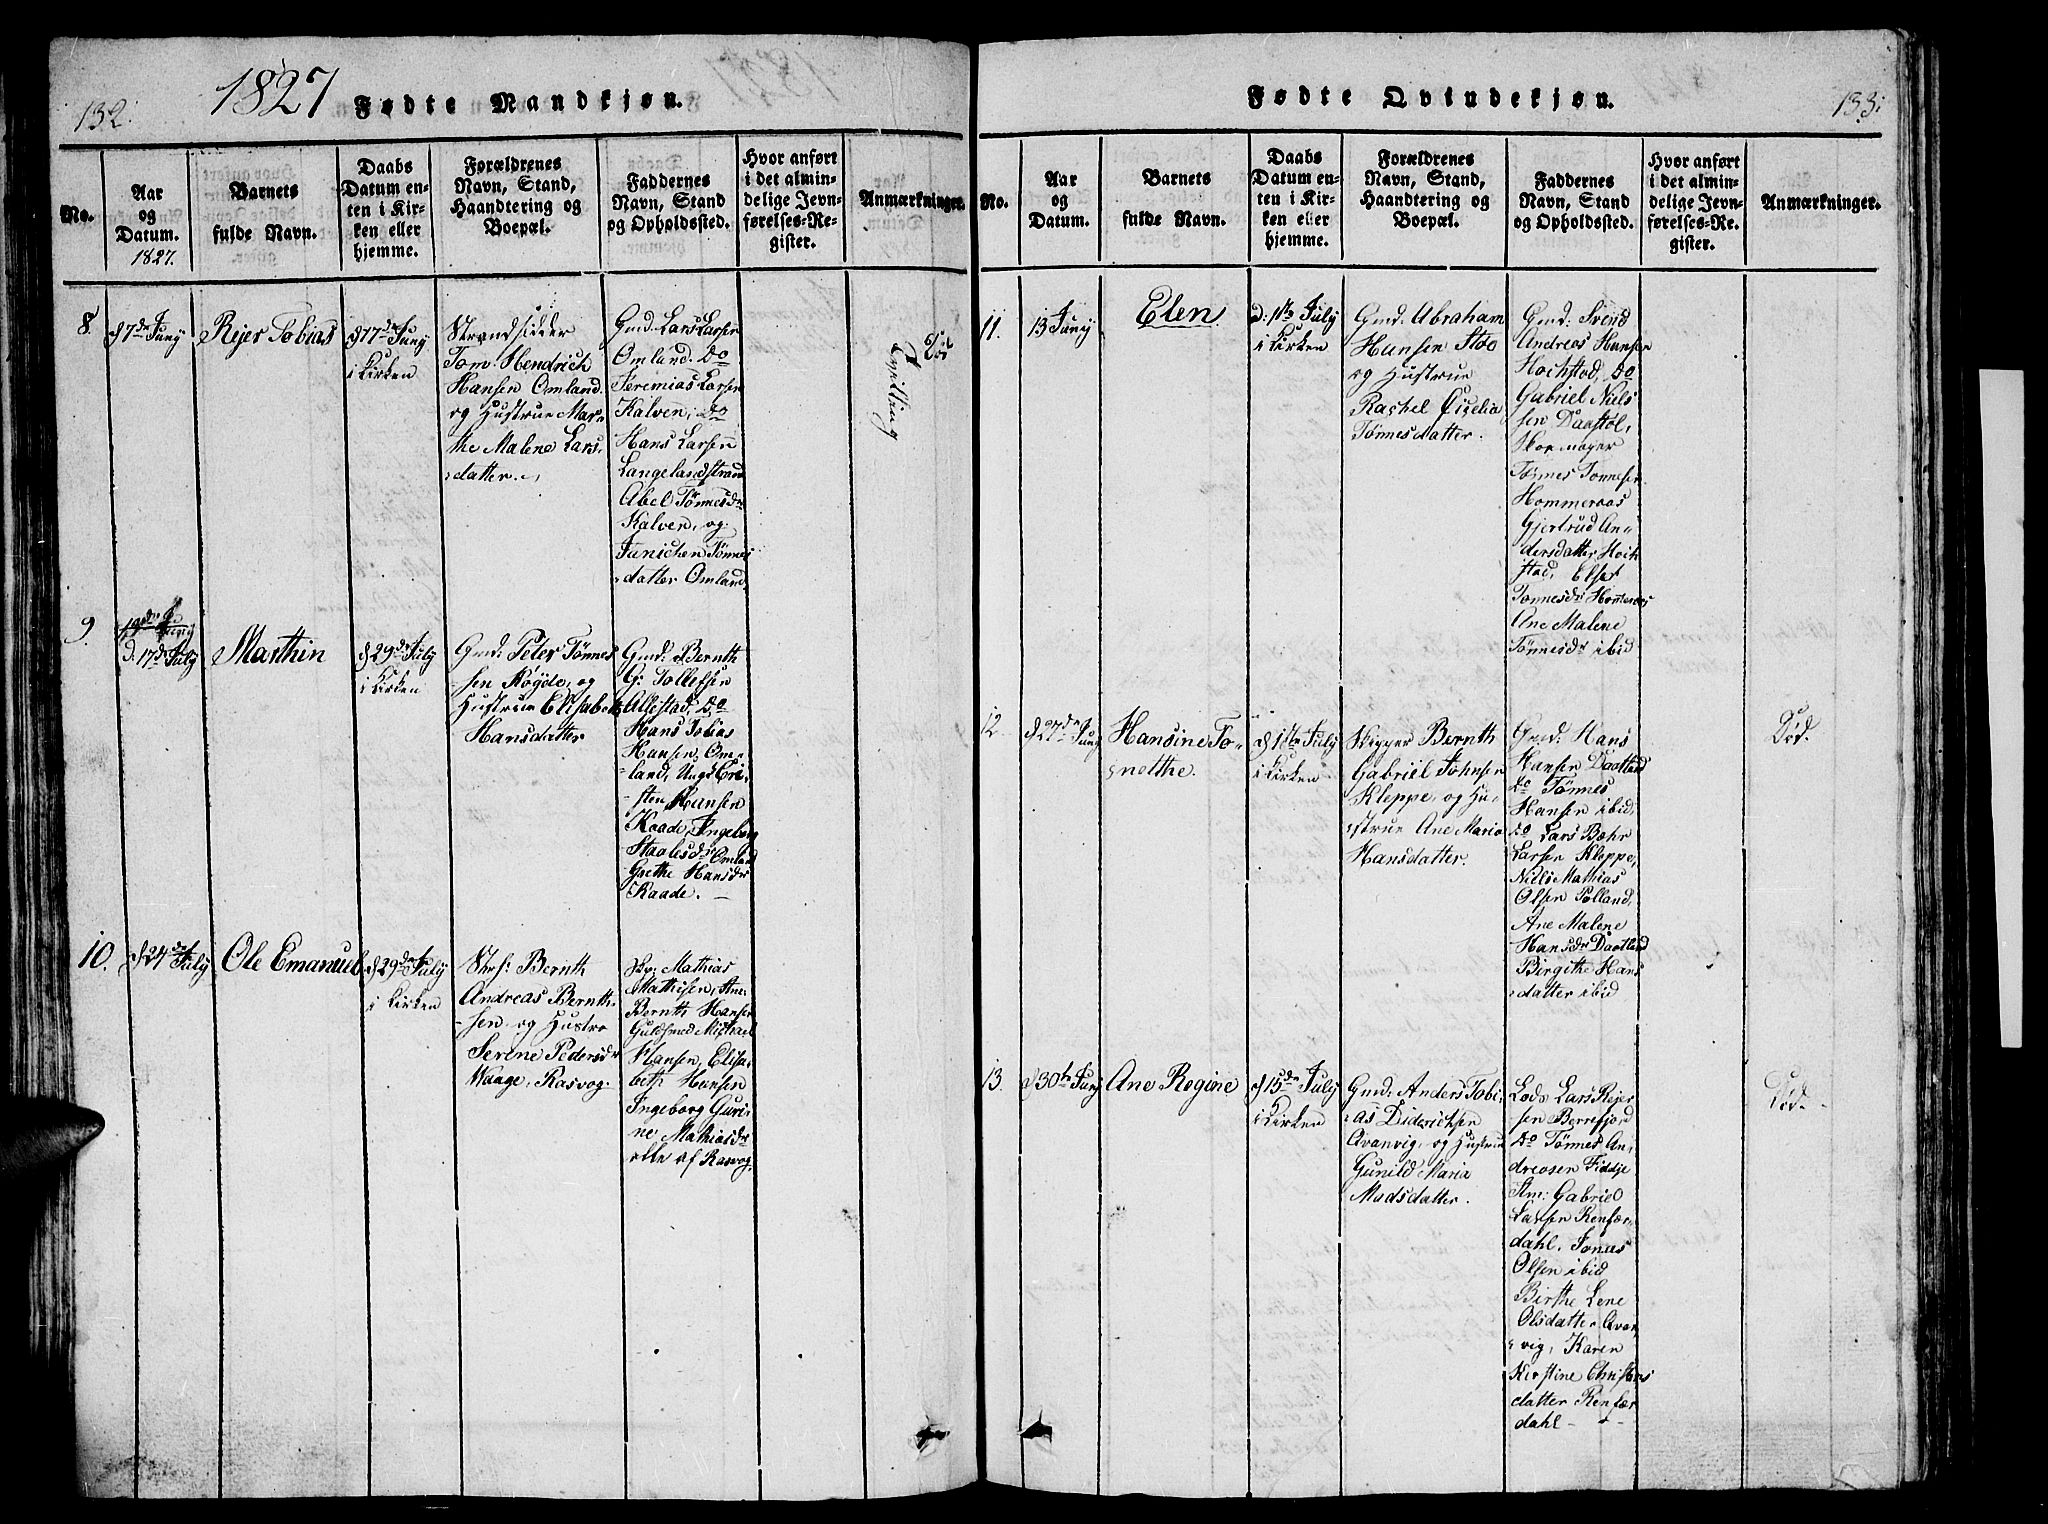 132.
1827
Fødte Mandkjøn.
No.
Aar
og
Datum.
1827.
Barnets
fulde Navn.
Daabs
Datum en-
ten i Kir-
ken eller
hjemme.
Forældrenes
Navn, Stand,
Haandtering og
Boepæl.
Faddernes
Navn, Stand
og Opholdssted.
Hvor anført
i det almin-
delige Jevn-
førelses-Re-
gister.
Anmærkninger.
8
d 7de Junÿ
Rejer Tobias
d 17de Junÿ
i Kirken
Strandsidder
Tom Hendrich
Hansen Omland
og Hustrue Mar-
the Malene Lars-
datter.
Gmd: Lars Larsen
Omland. Do
Jeremias Larsen
Kalven, Do
Hans Larsen
Langelandstrand
Abel Tønnesdr
Kalven, og
Junichen Tønnes
datter Omland,
Tvilling
Død
9.
d: 17de Julÿ
Marthin
d 29de Julÿ
i Kirken
Gmd: Peter Tønnes
sen Røyde, og
Hustrue Elisabeth
Hansdatter
Gmd: Bernth
G: Tollefsen
Allestad, Do
Hans Tobias
Hansen, Om-
land, Ungk Cri-
sten Hansen
Kaade, Ingeborg
Staalesdr Omland
Grethe Hansdr
Kaade. —
10.
d 24de Julÿ
Ole Emanuel
d 29de Julÿ
i Kirken
Strs: Bernth
Andreas Bernth-
sen og Hustro
Serine Pedersdr
Waage, Rasvog.
Sk: Mathias
Mathisen,
Bernth Hansen
Guldsmed Michael
Hansen, Elisa-
beth Hansen
Ingeborg Guri-
ne Mathiasdr
alle af Rasvog,
Fødte Qvindekjøn.
133.
No.
Aar
og
Datum.
Barnets
fulde Navn.
Daabs
Datum en-
ten i Kir-
ken eller
hjemme.
Forældrenes
Navn, Stand,
Haandtering og
Boepæl.
Faddernes
Navn, Stand
og Opholdssted.
Hvor anført
i det almin-
delige Jevn-
førelses-Re-
gister.
Anmærkninger.
11.
13 Junÿ
Elen
d: 1ste Julÿ
i Kirken
Gmd: Abraham
Hansen Stoo
og Hustrue
Rachel Cicelia
Tønnesdatter.
Gmd: Svend
Andreas Hansen
Hochstad, Do
Gabriel Niels
sen Daastøl,
Skoemager
Tønnes Tønnesen
Hommeraas
Gjertrud An-
dersdatter Hoch
stad, Else
Tønnesdr Hommeraas
Ane Malene
Tønnesdr ibid
12
d 27de Junÿ
Hansine To-
nethe.
d 1ste Julÿ
i Kirken
Skipper Bernth
Gabriel Johnsen
Kleppe, og Hu-
strue Ane Maria
Hansdatter.
Gmd: Hans
Hansen Daatland
Do Tønnes
Hansen ibid,
Do Lars Bæhr
Larsen Kleppe,
Niels Mathias
Olsen Tolland,
Ane Malene
Hansdr Daatland
Birgithe Hans
datter ibid
Død.
13.
d 30te Junÿ
Ane Regine
d 15de Julÿ
i Kirken
Gmd: Anders Tobi-
as Diderichsen
Qvanvig, og Hustrue
Gunild Maria
Madsdatter.
Lods Lars Rejer
sen Berrefjord
Do Tønnes An-
dreasen Fidje
Gabriel
Larsen Renfær-
dahl. Jonas
Olsen ibid
Birthe Lene
Olsdatter Qvan
vig, Karen
Kirstine Christens
datter Renfær
dahl —
Død.